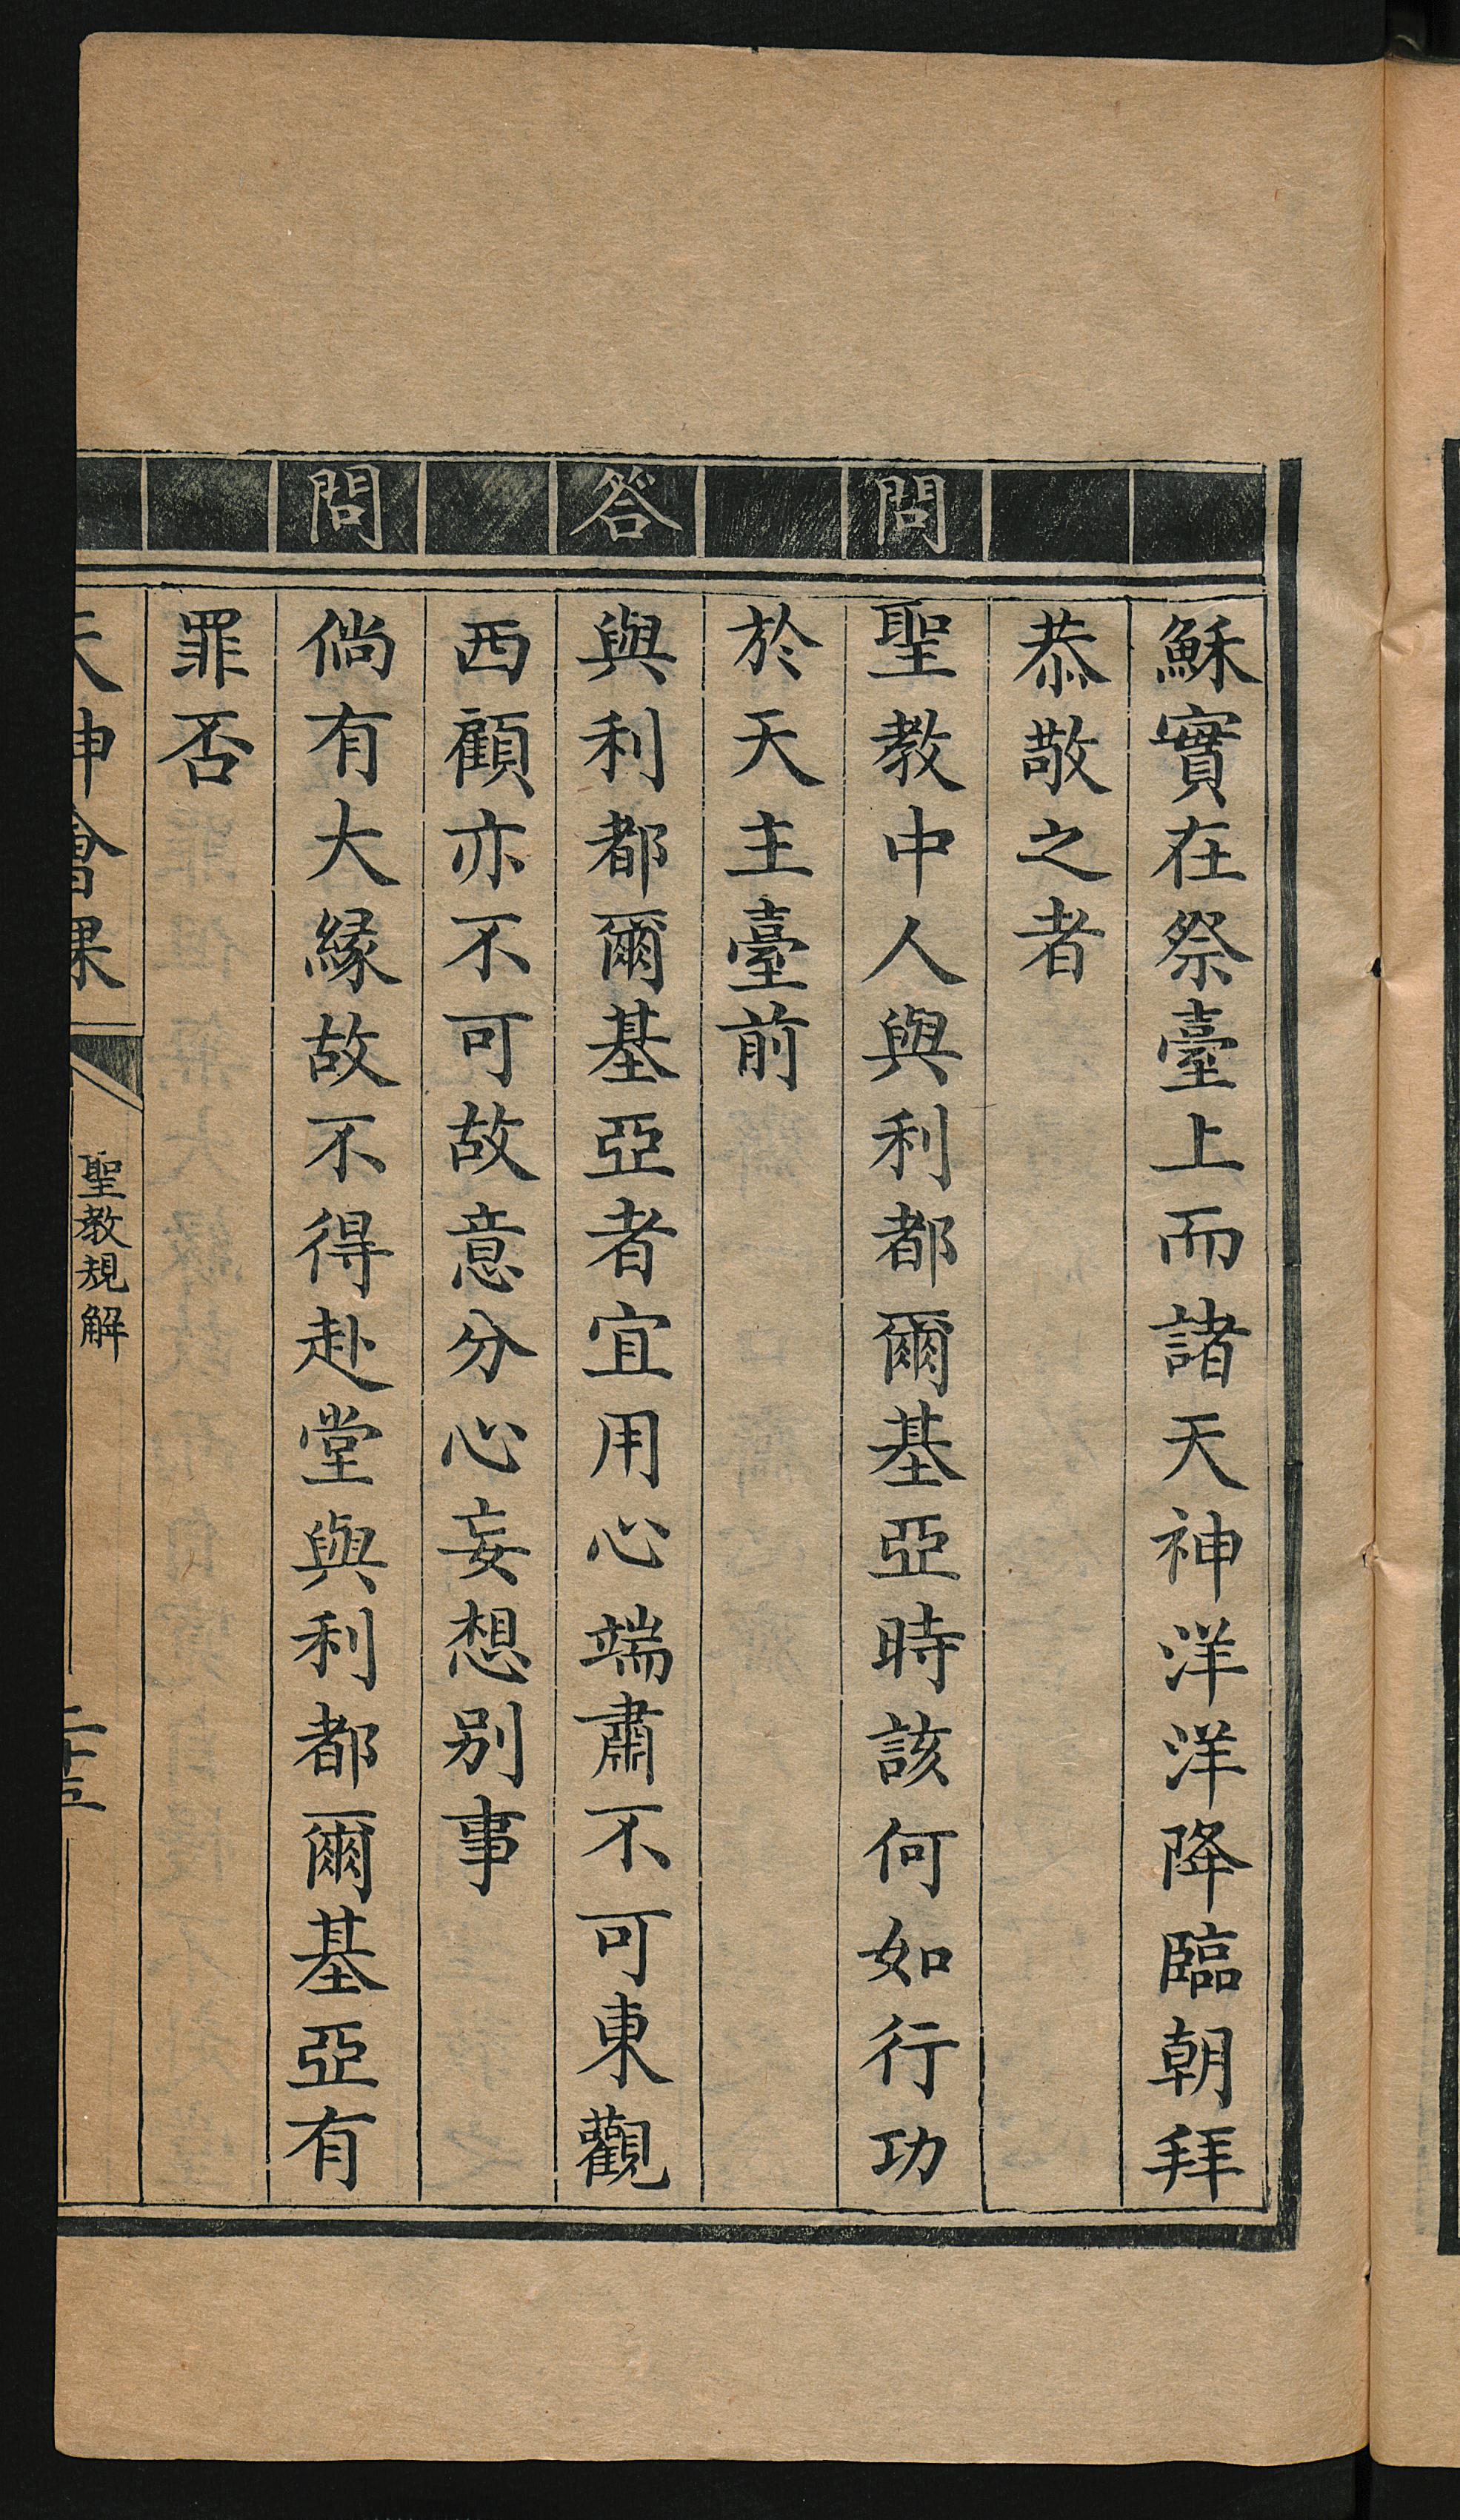 穌實在祭臺上而諸天神洋洋降臨朝拜
恭敬之者
問
聖教中人與利都爾基亞時該何如行功
於天主臺前
答
與利都爾基亞者宜用心端肅不可東觀
西顧亦不可故意分心妄想别事
問
倘有大緣故不得赴堂與利都爾基亞有
罪否
天神會課
聖教規解
二十五